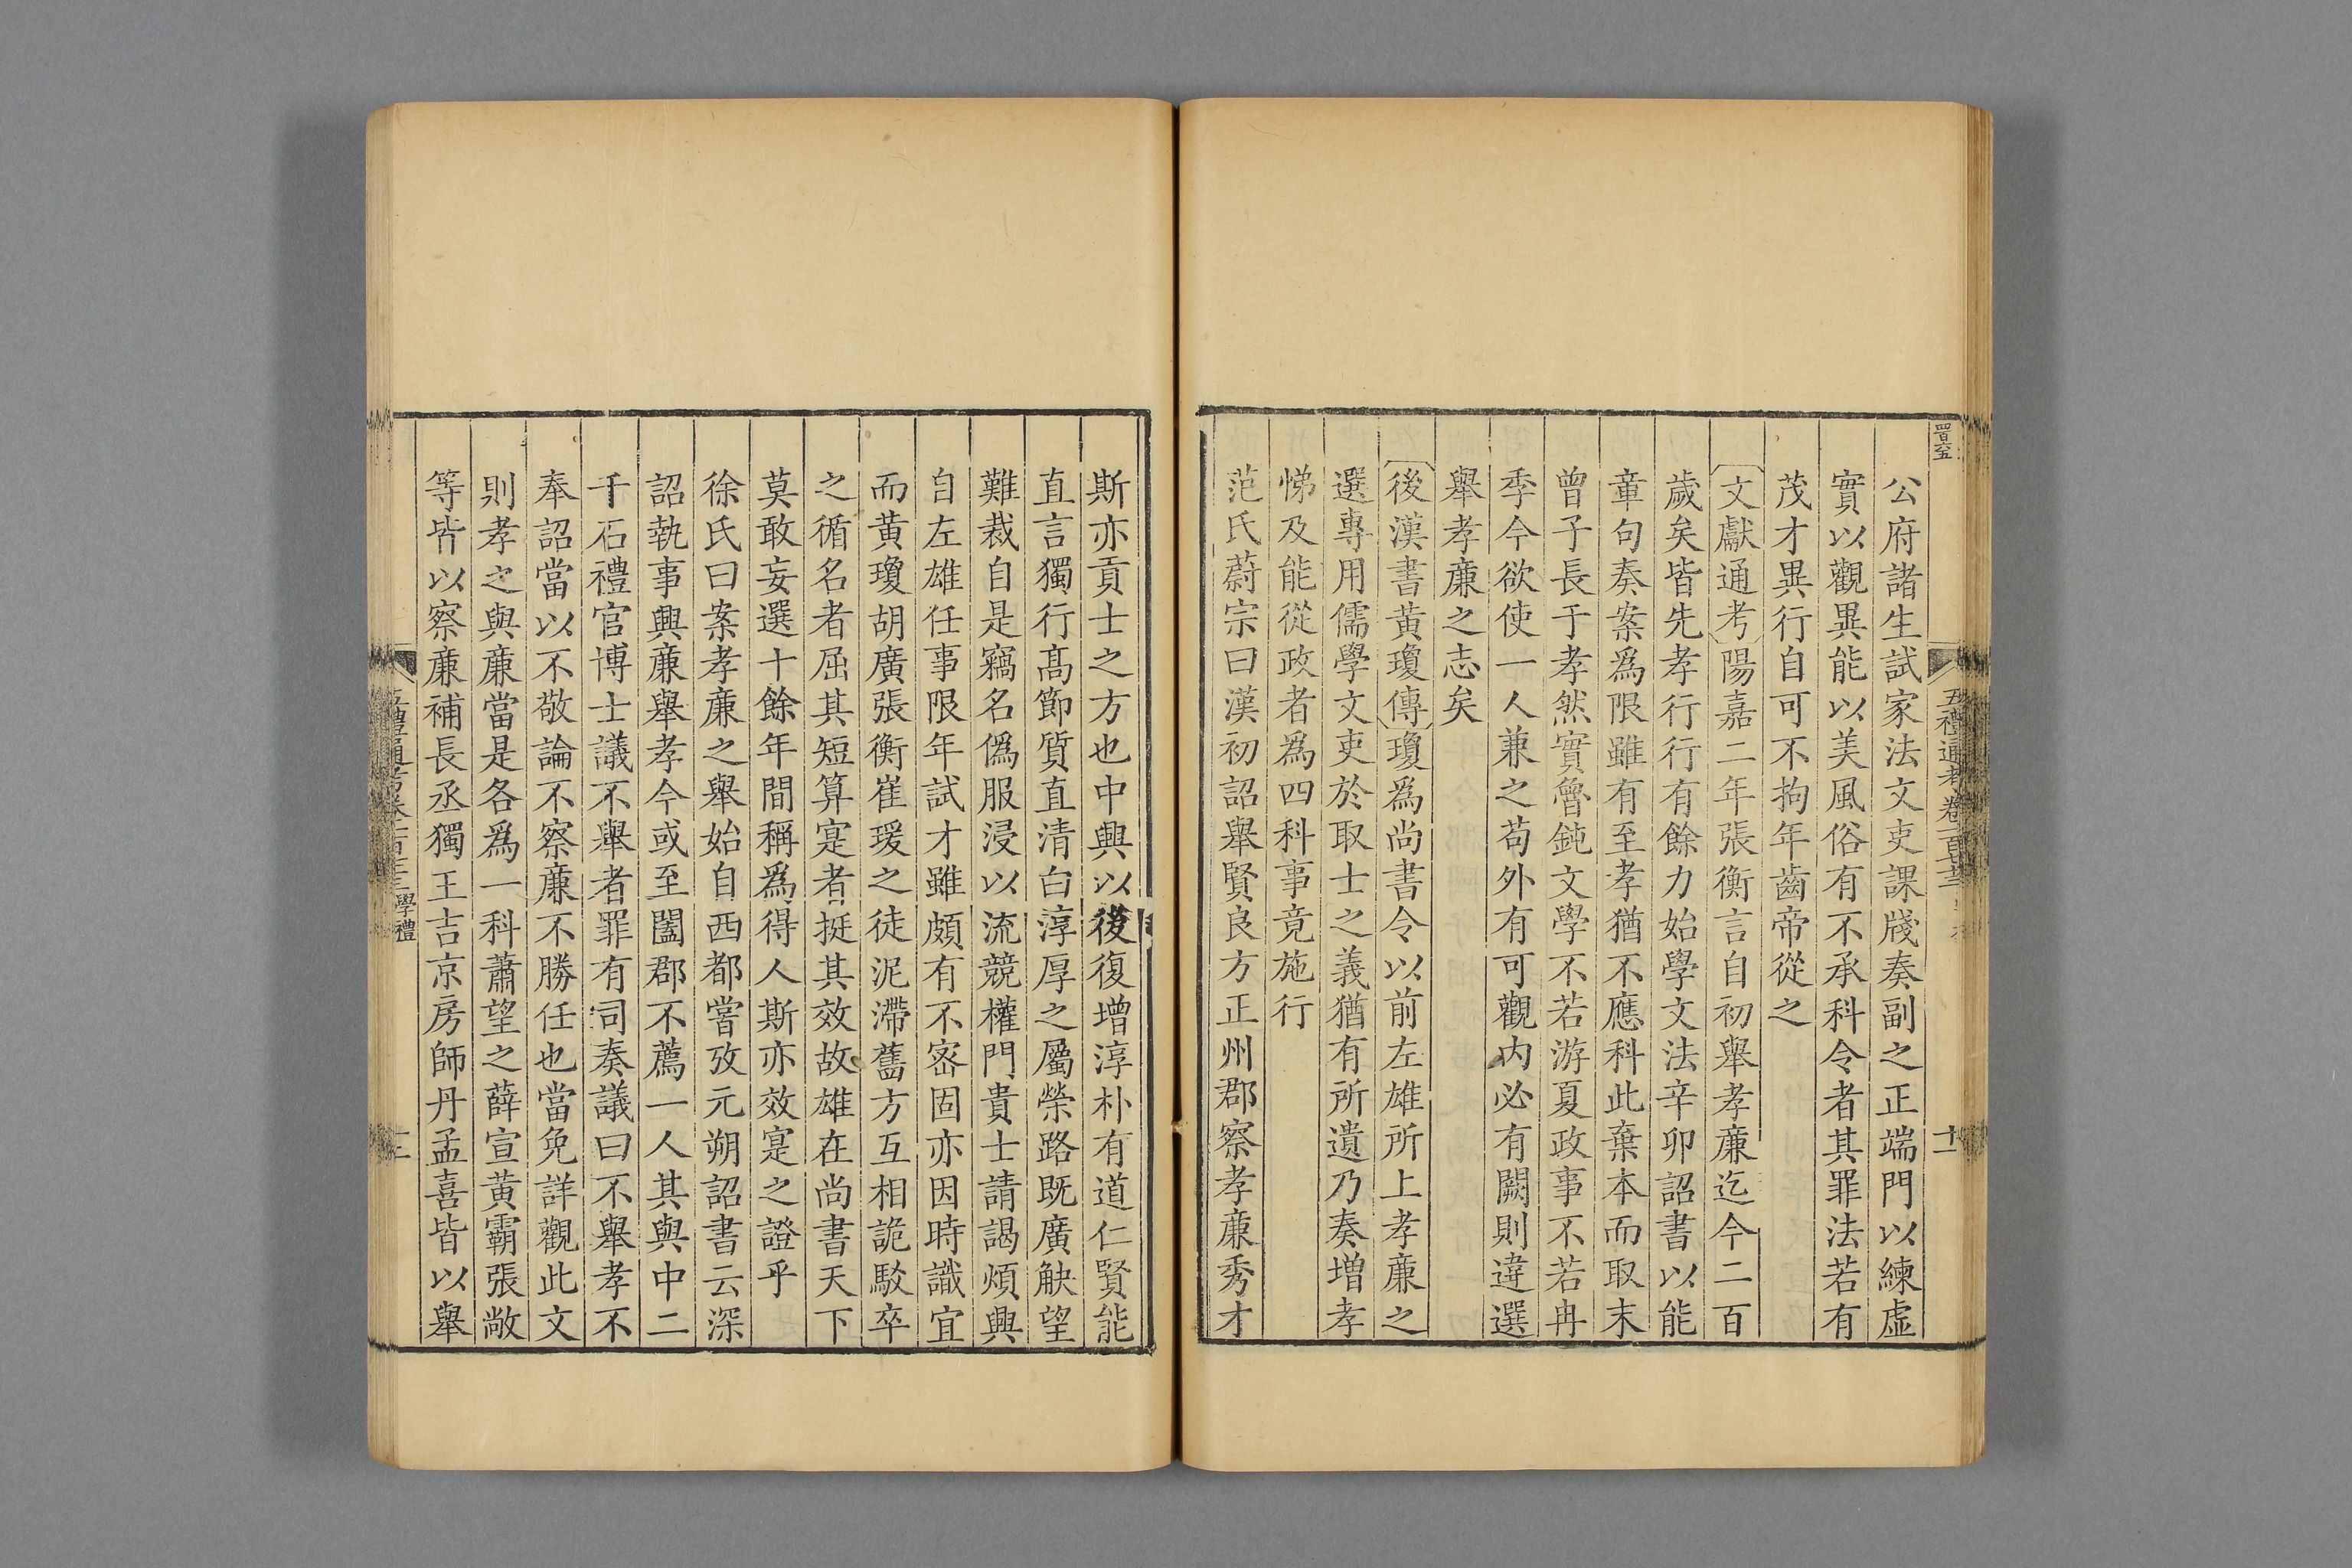 公府諸生試家法文吏課牋奏副之正端門以練虛
實以觀異能以美風俗有不承科令者其罪法若有
茂才異行自可不拘年齒帝從之
文獻通考陽嘉二年張衡言自初舉孝廉迄今二百
歲矣皆先孝行行有餘力始學文法辛卯詔書以能
章句奏案爲限雖有至孝猶不應科此棄本而取末
曾子長于孝然實魯鈍文學不若游夏政事不若冉
季今欲使一人兼之苟外有可觀内必有闕則違選
舉孝廉之志矣
後漢書黄瓊傳瓊爲尚書令以前左雄所上孝廉之
選專用儒學文吏於取士之義猶有所遺乃奏增孝
悌及能從政者爲四科事竟施行
范氏蔚宗曰漢初詔舉賢良方正州郡察孝廉秀才
斯亦貢士之方也中興以後復增淳朴有道仁賢能
直言獨行髙節質直清白淳厚之屬榮路既廣觖望
難裁自是竊名僞服浸以流競權門貴士請謁煩興
自左雄任事限年試才雖頗有不密固亦因時識宜
而黄瓊胡廣張衡崔瑗之徒泥滯舊方互相詭駮卒
之循名者屈其短算寔者挺其效故雄在尚書天下
莫敢妄選十餘年間稱爲得人斯亦效寔之證乎
徐氏曰案孝廉之舉始自西都嘗攷元朔詔書云深
詔執事興廉舉孝今或至闔郡不薦一人其與中二
千石禮官博士議不舉者罪有司奏議曰不舉孝不
奉詔當以不敬論不察廉不勝任也當免詳觀此文
則孝之與廉當是各爲一科蕭望之薛宣黄霸張敞
等皆以察廉補長丞獨王吉京房師丹孟喜皆以舉
五禮通考卷一百七十三 學禮